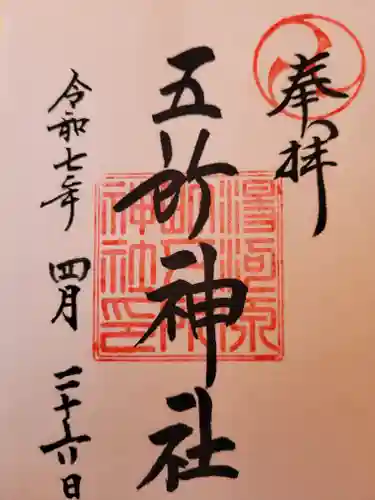 奉拝
五所神社
湯河原
五所神社
神社印
令和七年
四月
二十六日